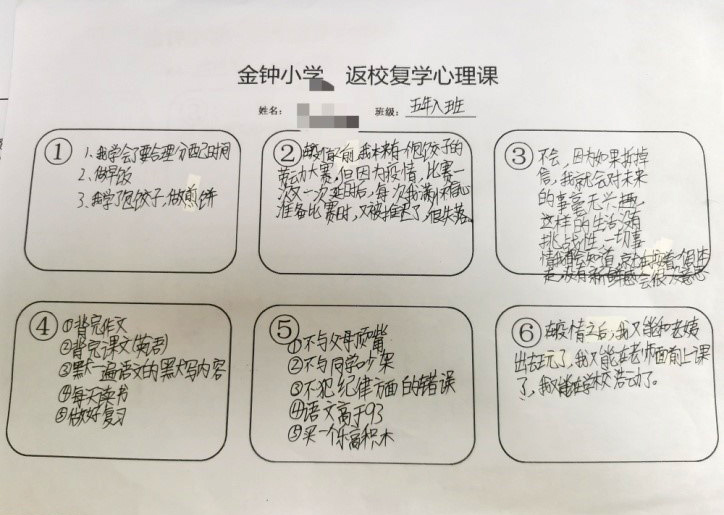 金钟小学 返校复学心理课
姓名: 班级: 五年八班
①
1、我学会了要合理分配时间
2、做早饭
3、我学了包饺子,做煎饼
②
我本来有一个包饺子的
劳动大赛,但因为疫情,比赛一
次又一次延时后,每次我满怀信心
准备比赛时,又被推迟了,很失落。
③
不会,因为如果拆掉
信,我就会对未来
的事毫无兴趣,
这样的生活没有
挑战性,一切事
情我都会知道,
走,没有新鲜感会很没意思
④
①背完作文
②背完课文(英语)
③默一遍语文的默写内容
④每天读书
⑤做好复习
⑤
①不与父母顶嘴
②不与同学吵架
③不犯纪律方面的错误
④语文高于93
⑤买一个乐高积木
⑥
在疫情之后,我又能和老姨
出去玩了,我又能在老师面前上课
了,我又能在学校活动了。